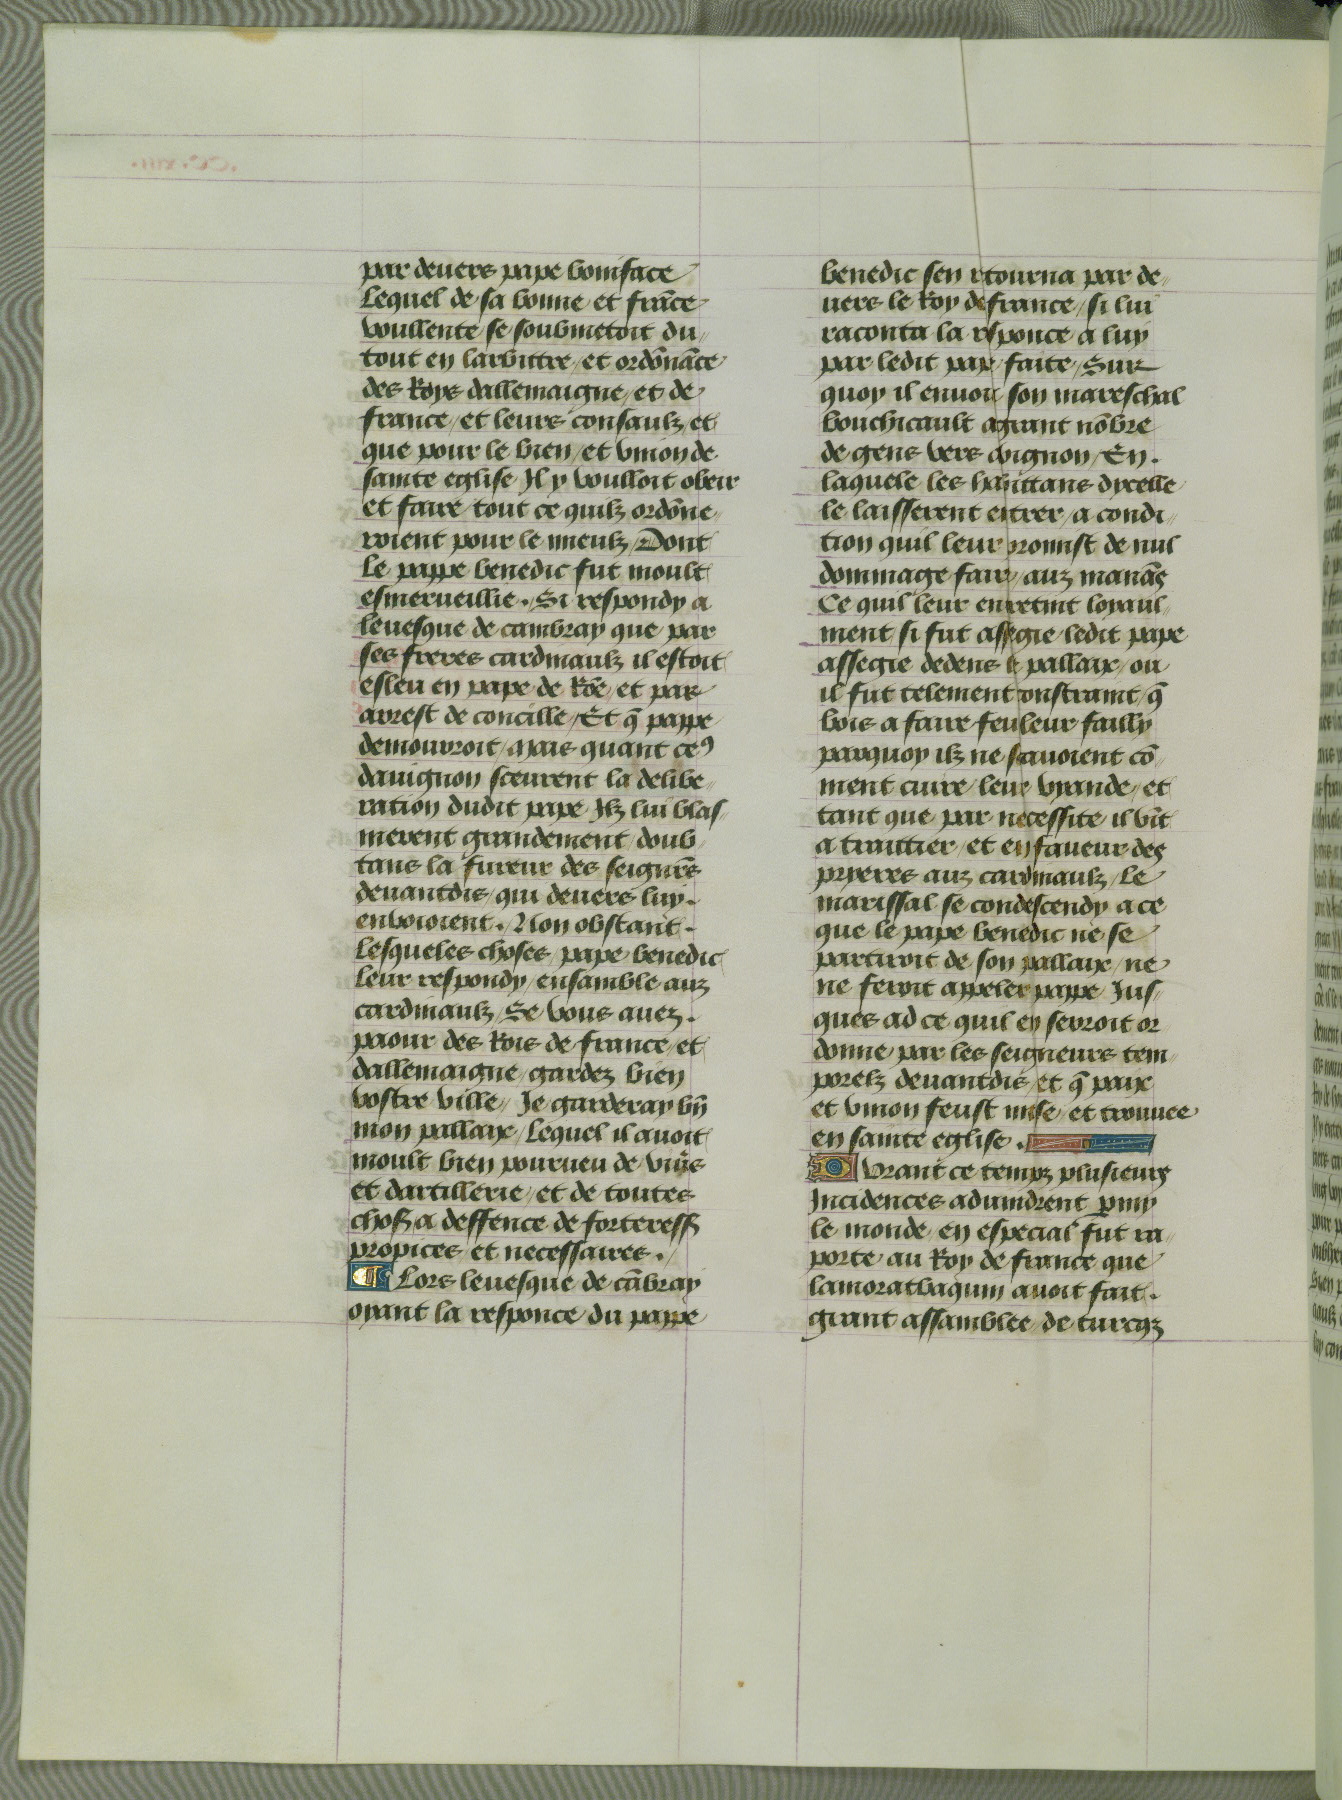 par deuers pape boniface
Lequel de sa bonne et frāce
voullente se soubmetoit du
tout en larbittre et ordōnāce
des Roys dallemaigne et de
france et leurs consaulz et
que pour le bien et vnion de
sainte eglise Il y voulloit obeir
et faire tout ce quilz ordōne
roient pour le mieulz Dont
Le pappe benedic fut moult
esmerueillie . Si respondy a
leuesque de cambray que par
ses freres cardinaulz il estoit
esleu en pape de Rōe et par
arrest de concille Et q̄ pappe
demourroit Mais quant ceꝰ
dauignon sceurent la delibe
ration dudit pape Ilz lui blas
merent grandement doub
tans la fureur des seignr̄s
deuantdis qui deuers luy .
enuoioient . Non obstant .
Lesqueles choses pape benedic
leur respondy ensamble auz
cardinaulz Se vous auez .
paour des Rois de france et
dallemaigne gardez bien
vostre ville Je garderay bn̄
mon pallaix Lequel il auoit
moult bien pourueu de viur̄s
et dartillerie et de toutes
choss a deffence de forteress
propices et necessaires .
¶ Lors leuesque de cābray
oyant la responce du pappe
benedic sen retourna par de
uers le Roy de france si lui
raconta la responce a luy
par ledit pape faite Sur
quoy il enuoia son mareschal
bouchicault a grant nōbre
de gens vers auignon En .
laquele les habittans dycelle
le laisserent entrer a condi
tion quil leur promist de nul
dommage faire auz manās
Ce quil leur entretint loyaul
ment si fut assegie ledit pape
assegie dedens le pallaix ou
il fut telement constraint q̄
bois a faire feu leur failly
parquoy ilz ne sauoient cō
ment cuire leur vyande et
tant que par necessite il vīt
a traittier et en faueur des
pryeres auz cardinaulz le
marissal se condescendy a ce
que le pape benedic ne se
partiroit de son pallaix ne
ne feroit appeler pappe Jus
ques ad ce quil en seroit or
donne par les seigneurs tem
porelz deuantdis et q̄ paix
et vnion feust mise et trouuee
en sainte eglise .
Durant ce tempz plusieurs
Incidences aduindrent ꝑmy
le monde en especial fut ra
porte au Roy de france que
lamorathaquin auoit fait .
grant assamblee de turcqz